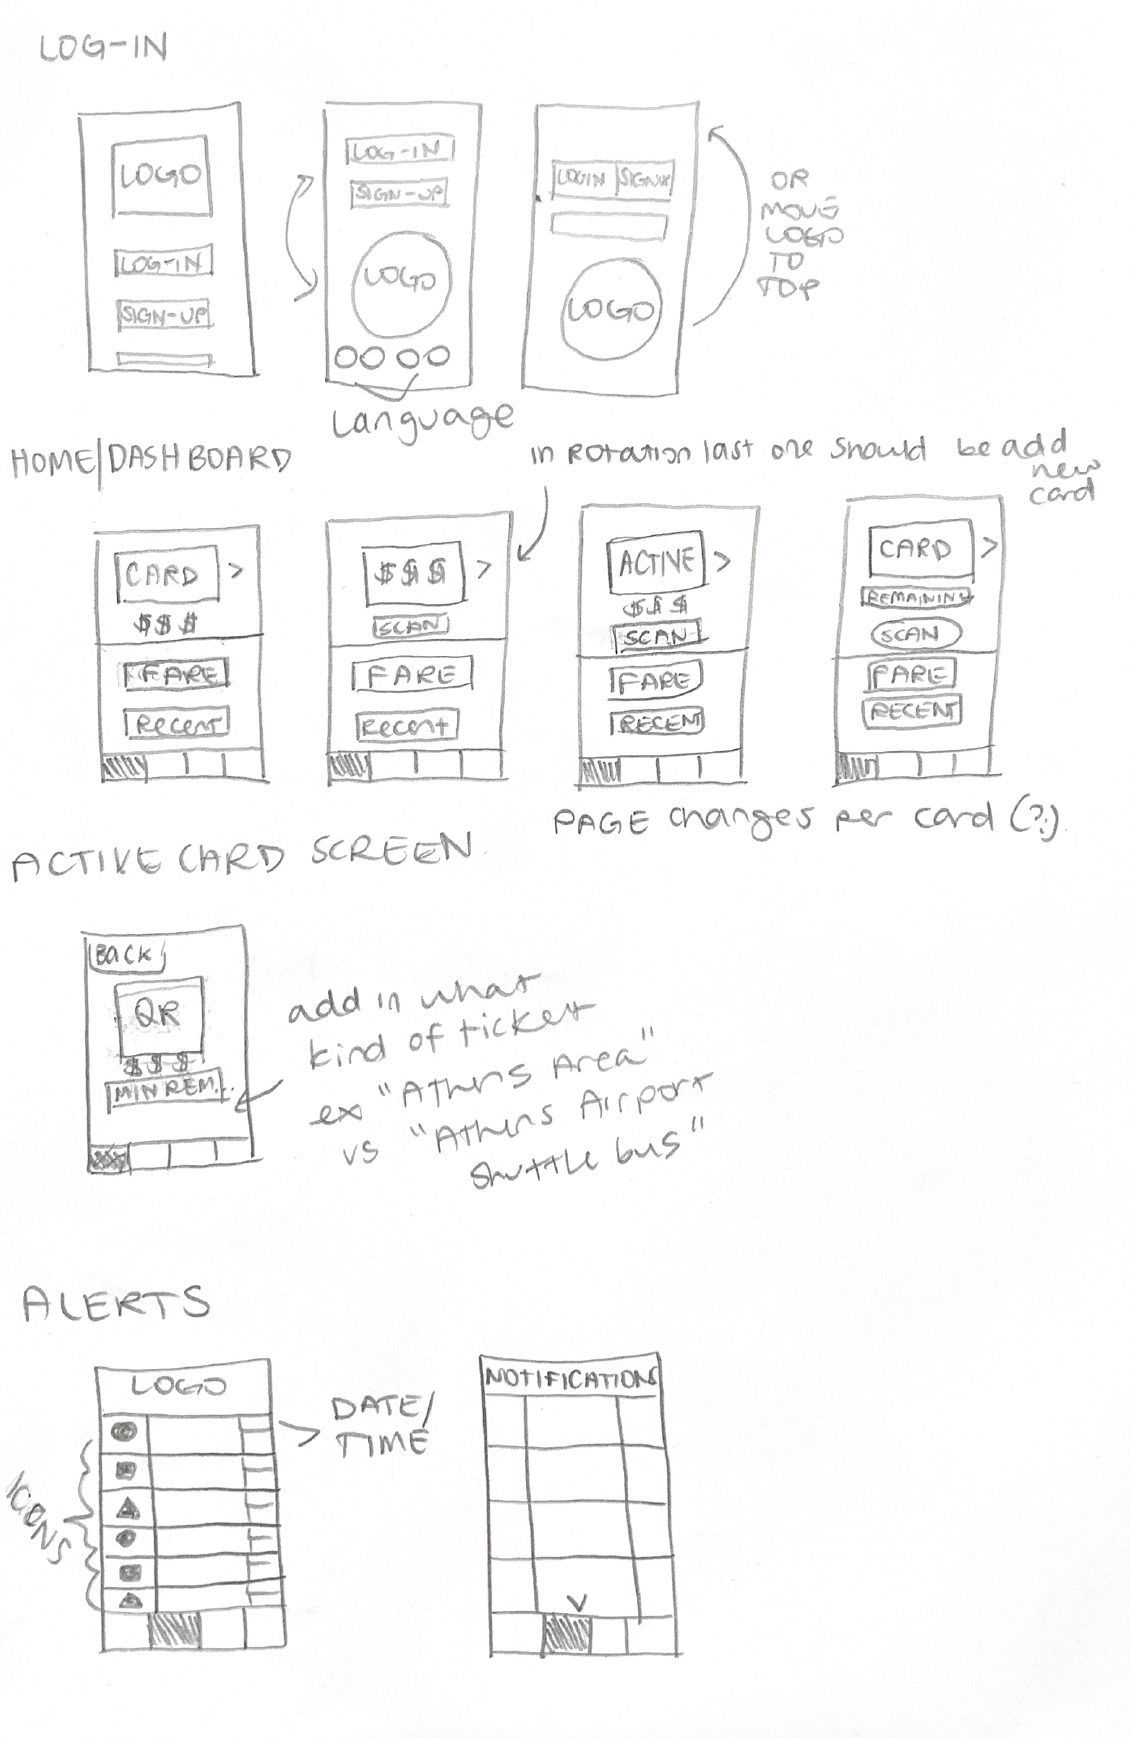 LOG-IN
LOGO
LOG-IN
SIGN-UP
LOG-IN
SIGN-UP
LOGO
Language
LOGIN SIGNUP
LOGO
OR
MOVE
LOGO
TO
TOP
HOME/DASHBOARD
in Rotation last one should be add
new
card
CARD >
$$$
FARE
Recent
$$$ >
SCAN
FARE
Recent
ACTIVE >
$$$
SCAN
FARE
RECENT
CARD >
REMAINING
SCAN
FARE
RECENT
PAGE changes per card (?)
ACTIVE CARD SCREEN
BACK
QR
$$$
MIN REM.
add in what
kind of ticket
ex "Athens Area"
vs "Athens Airport
Shuttle bus"
ALERTS
LOGO
DATE/
TIME
ICONS
NOTIFICATIONS